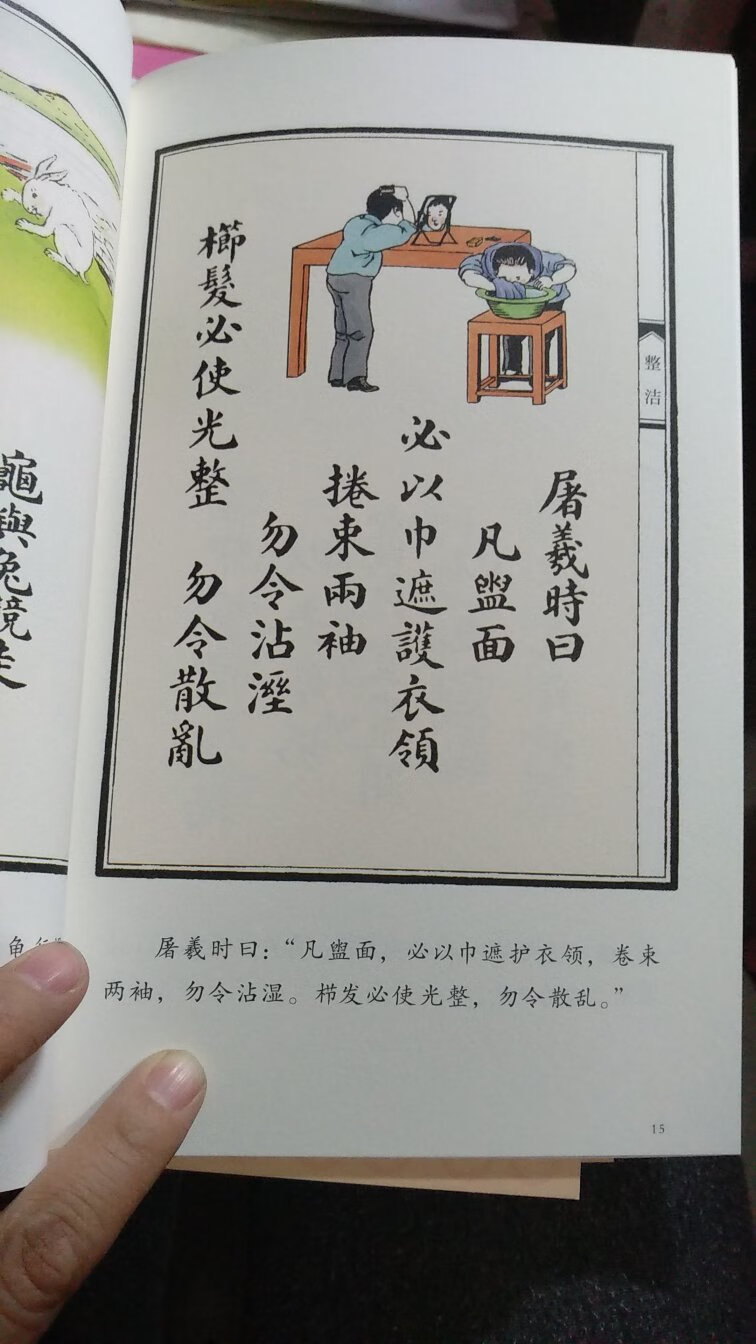 龜與兔競走
龟行
整洁
屠羲時曰
凡盥面
必以巾遮護衣領
捲束兩袖
勿令沾溼
櫛髮必使光整 勿令散亂
屠羲时曰：“凡盥面，必以巾遮护衣领，卷束
两袖，勿令沾湿。栉发必使光整，勿令散乱。”
15